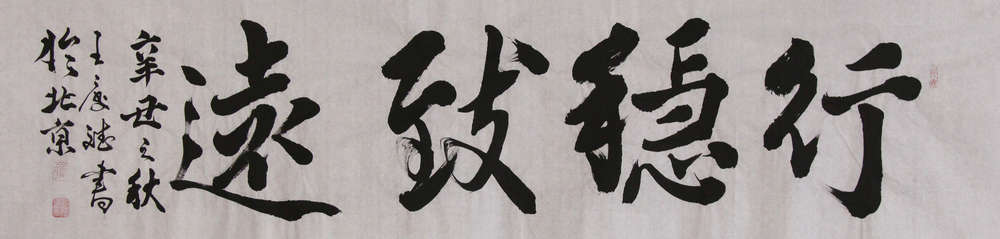 行穩致遠
辛丑之秋
王彦斌書
於北京